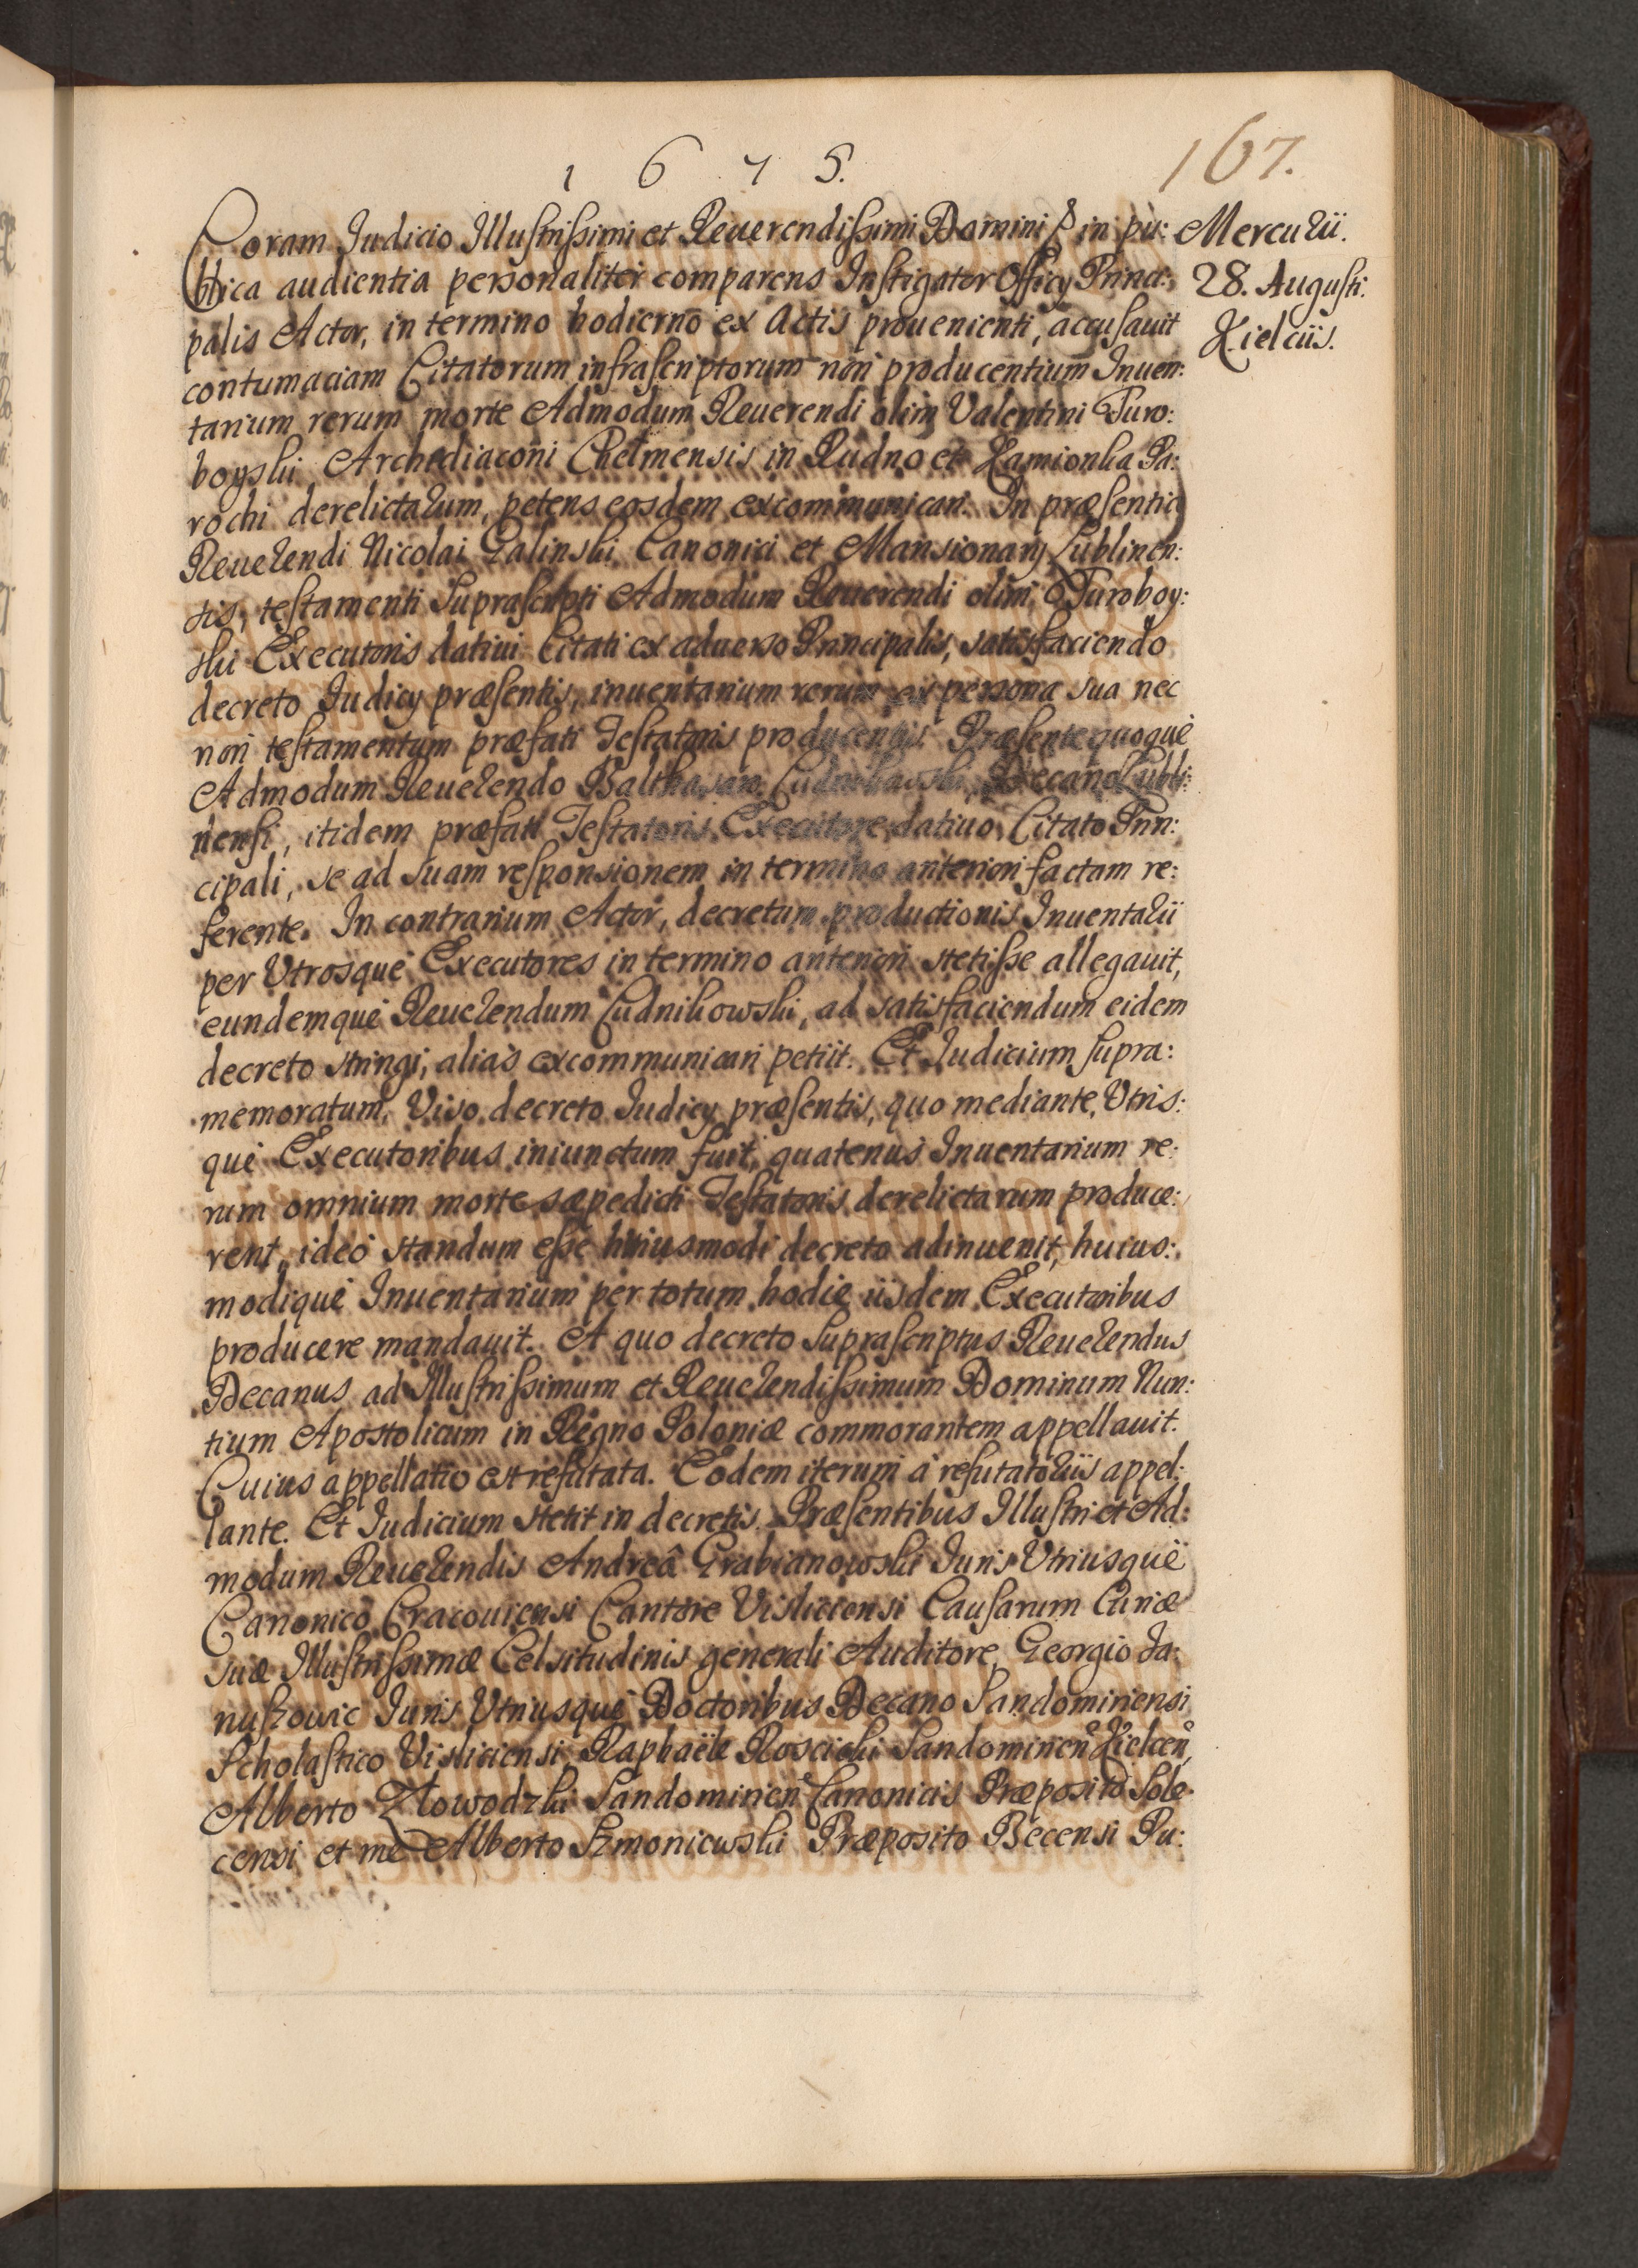 1 6 7 5.
167.
Coram Iudicio Illustrissimi et Reuerendissimi Domini in pu:
blica audientia personaliter comparens Instigator Officÿ Princi:
palis Actor, in termino hodierno ex Actis prouenienti, accusauit
contumaciam Citatorum infrascriptorum non producentium Inuen:
tarium rerum morte Admodum Reuerendi olim Valentini Turo:
boyski Archediaconi Chelmensis in Rudno et Kamionka Pa:
rochi derelictarum, petens eosdem excommunicari. In præsentia
Reuerendi Nicolai Galinski Canonici et Mansionarÿ Lublinen:
sis, testamenti Suprascripti Admodum Reuerendi olim Turoboy:
ski Executoris datiui Citati ex aduerso Principalis, satisfaciendo
decreto Iudicÿ præsentis, inuentarium rerum ex persona sua nec
non testamentum præfati Testatoris producentis. Præsente quoquè
Admodum Reuerendo Balthasaro Cudnikowski, Decano Lubli:
nensi, itidem præfati Testatoris Executore datiuo, Citato Prin:
cipali, se ad suam responsionem in termino anteriori factam re:
ferente. In contrarium Actor, decretum productionis Inuentarii
per Vtrosquè Executores in termino anteriori stetisse allegauit,
eundemquè Reuerendum Cudnikowski, ad satisfaciendum eidem
decreto stringi, aliàs excommunicari petiit. Et Iudicium supra:
memoratum, Viso decreto Iudicÿ præsentis, quo mediante, Vtris:
què Executoribus iniunctum fuit, quatenus Inuentarium re:
rum omnium morte sæpedicti Testatoris derelictarum produce:
rent, ideò standum esse huiusmodi decreto adinuenit, huius:
modiquè Inuentarium per totum hodie iisdem Executoribus
producere mandauit. A quo decreto suprascriptus Reuerendus
Decanus ad Illustrissimum et Reuerendissimum Dominum Nun:
tium Apostolicum in Regno Poloniæ commorantem appellauit.
Cuius appellatio est refutata. Eodem iterum à refutatoriis appel:
lante. Et Iudicium stetit in decretis. Præsentibus Illustri et Ad:
modum Reuerendis Andreâ Grabianowski Iuris Vtriusquè
Canonico Cracouiensi Cantore Visliciensi Causarum Curiæ
suæ Illustrissimæ Celsitudinis generali Auditore, Georgio Ia:
nuszowic Iuris Vtriusquè Doctoribus Decano Sandomiriensi
Scholastico Visliciensi, Raphaële Roscicki Sandomirien Kielcen,
Alberto Zlowodzki Sandomirien Canonicis Præposito Sole:
censi et me Alberto Szmoniewski Præposito Becensi Pu:
Mercurii.
28. Augusti.
Kielciis.